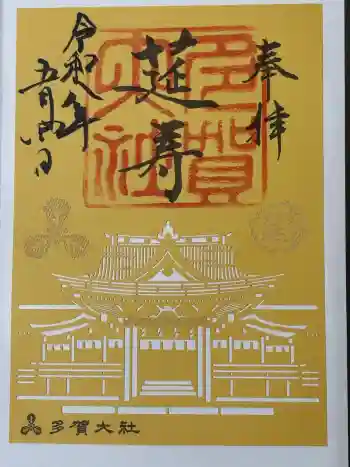 奉拝
延寿
多賀大社
令和八年
五月四日
多賀大社